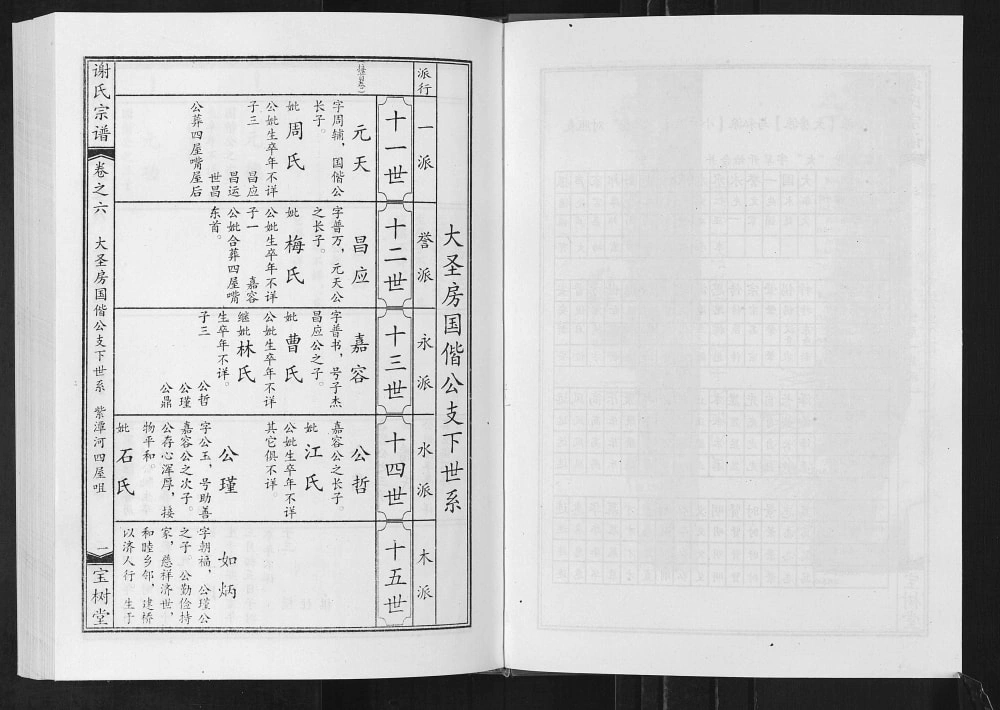 大圣房国偕公支下世系
派行
一派
誉派
永派
水派
木派
十一世
十二世
十三世
十四世
十五世
元天
字周辅，国偕公
长子。
妣 周氏
公妣生卒年不详
子三 昌应
昌运
世昌
公葬四屋嘴屋后
昌应
字普万，元天公
之长子。
妣 梅氏
公妣生卒年不详
子一 嘉容
公妣合葬四屋嘴
东首。
嘉容
字普书，号子杰
昌应公之子。
妣 曹氏
公妣生卒年不详
继妣 林氏
生卒年不详。
子三 公哲
公瑾
公鼎
公哲
嘉容公之长子。
妣 江氏
公妣生卒年不详
其它俱不详。
公瑾
字公玉，号助善
嘉容公之次子。
公存心浑厚，接
物平和。
妣 石氏
如炳
字朝福，公瑾公
之子。公勤俭持
家，慈祥济世，
和睦乡邻，建桥
以济人行 生于
谢氏宗谱
卷之六 大圣房国偕公支下世系 紫潭河四屋咀
一
宝树堂